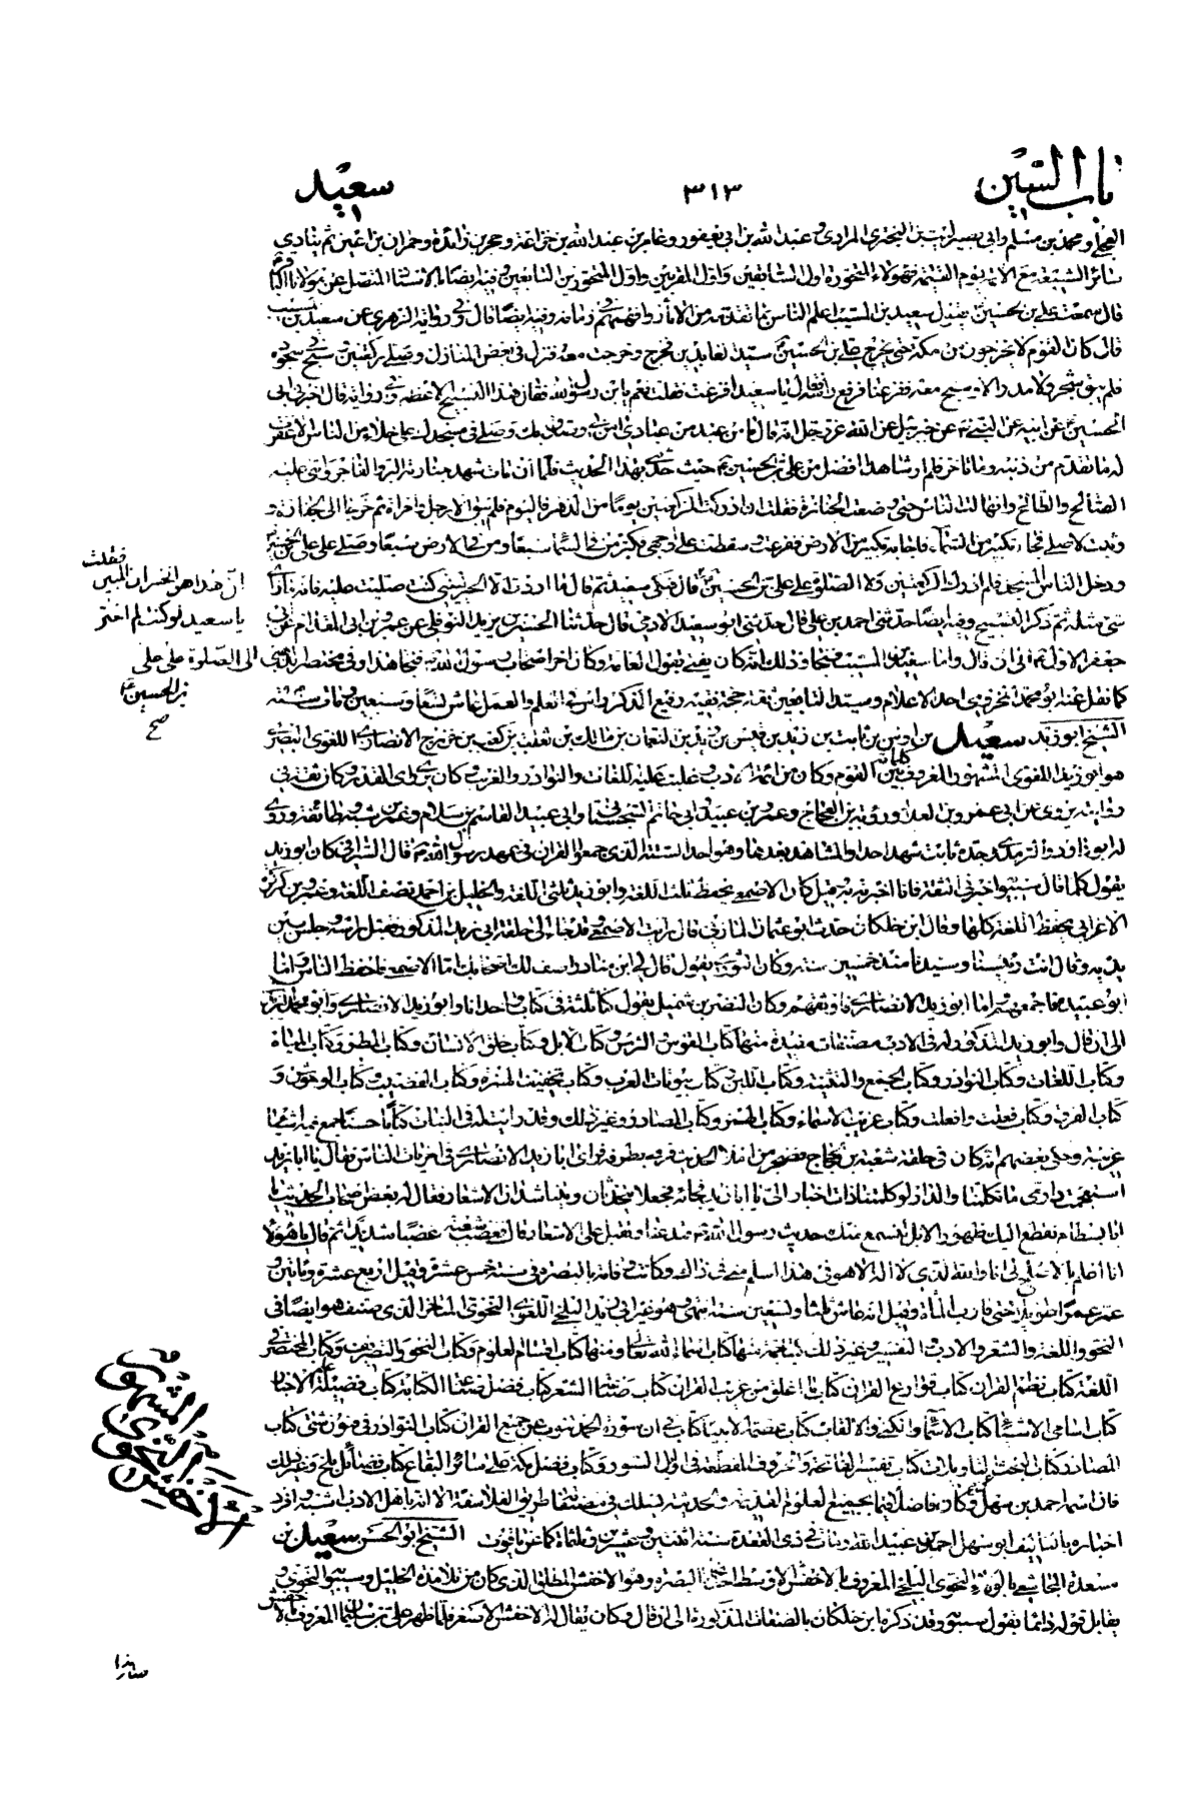 باب السين
٣١٣
سعيد
العجلي ومحمد بن مسلم وابي بصير ليث بن البختري المرادي وعبد الله بن ابي يعفور وعامر بن عبد الله بن جذاعة وحجر بن زائدة وحمران بن اعين ثم ينادي
سائر الشيعة مع الائمة يوم القيمة فهؤلاء المتحورة اول السابقين واول المقربين واول المتحورين من التابعين وفيه ايضا بالاسناد المتصل عن مولانا الباقر
قال سمعت علي بن الحسين يقول سعيد بن المسيب اعلم الناس بما تقدمه من الآثار وافهمهم في زمانه وفيه ايضا قال وفي رواية الزهري عن سعيد بن المسيب
قال كان القوم لا يخرجون من مكة حتى يخرج علي بن الحسين سيد العابدين فخرج وخرجت معه فنزل في بعض المنازل وصلى ركعتين وسبح في سجوده
فلم يبق شجر ولا مدر الا سبح معه ففزعنا فرفع راسه فقال يا سعيد افزعت فقلت نعم يابن رسول الله فقال هذا التسبيح الاعظم وفي رواية قال اخبرني ابي
الحسين عن ابيه عن النبي عن جبرئيل عن الله عز وجل انه قال ما من عبد من عبادي امن بي وصدق بك وصلى في مسجدك على خلاء من الناس الا غفرت
له ما تقدم من ذنبه وما تاخر فلم ار شاهدا افضل من علي بن الحسين حيث حدثني بهذا الحديث فلما ان مات شهد جنازته البر والفاجر واثنى عليه
الصالح والطالح وانهال الناس حتى وضعت الجنازة فقلت ان ادركت الركعتين يوما من الدهر فاليوم فلم يبق الا رجل وامراة ثم خرجا الى الجنازة و
وثبت لاصلي فجاء تكبير من السماء فاجابه تكبير من الارض ففزعت وسقطت على وجهي فكبر من في السماء سبعا ومن في الارض سبعا وصلى على علي بن الحسين
ودخل الناس المسجد فلم ادرك الركعتين ولا الصلوة على علي بن الحسين قال فبكى سعيد ثم قال ما اردت الا الخير ليتني كنت صليت عليه فانه ما رأى
جعفر الاول
كما نقل عنه ابو محمد المخزومي احد الاعلام وسيد التابعين ثقة حجة فقيه رفيع الذكر راس في العلم والعمل عاش تسعا وسبعين ومات سنة
الشيخ ابو زيد سعيد بن اوس بن ثابت بن زيد بن قيس بن زيد بن النعمان بن مالك بن ثعلبة بن كعب بن خزرج الانصاري اللغوي البصري
هو ابو زيد اللغوي المشهور المعروف بين القوم وكان من ائمة الادب وغلبت عليه اللغات والنوادر والغريب وكان يرى راي القدر وكان ثقة في
روايته يروي عن ابي عمرو بن العلاء ورؤبة بن العجاج وعمرو بن عبيد وابي حاتم السجستاني وابي عبيد القاسم بن سلام وعمر بن شبة وطائفة وروى
له ابو داود والترمذي جده ثابت شهد احدا والمشاهد بعدها وهو احد الستة الذي جمعوا القران في عهد رسول الله قال السيرافي كان ابو زيد
يقول كلما قال سيبويه اخبرني الثقة فانا اخبرته به قيل كان الاصمعي يحفظ ثلث اللغة وابو زيد ثلثي اللغة والخليل بن احمد نصف اللغة وعمرو بن كركرة
الاعرابي يحفظ اللغة كلها وقال ابن خلكان حدث ابو عثمان المازني قال رايت الاصمعي وقد جاء الى حلقة ابي زيد المذكور فقبل راسه وجلس بين
يديه وقال انت رئيسنا وسيدنا منذ خمسين سنة وكان الثوري يقول قال لي ابن مناذر اصف لك اصحابك اما الاصمعي فاحفظ الناس واما
ابو عبيدة فاجمعهم واما ابو زيد الانصاري فاوثقهم وكان النضر بن شميل يقول كنا ثلثة في كتاب واحد انا وابو زيد الانصاري وابو محمد اليزيدي
الى ان قال وابو زيد المذكور له في الادب مصنفات مفيدة منها كتاب القوس والترس وكتاب الابل وكتاب خلق الانسان وكتاب المطر وكتاب المياه
وكتاب اللغات وكتاب النوادر وكتاب الجمع والتثنية وكتاب اللبن وكتاب بيوتات العرب وكتاب تخفيف الهمزة وكتاب القضيب وكتاب الوحوش و
كتاب الفرق وكتاب فعلت وافعلت وكتاب غريب الاسماء وكتاب الهمز وكتاب المصادر وغير ذلك وقد رايت له في النبات كتابا حسنا جمع فيه اشياء
غريبة وحكى بعضهم انه كان في حلقة شعبة بن الحجاج فضجر من املاء الحديث فرمى بطرفه فراى ابا زيد الانصاري في اخريات الناس فقال يا ابا زيد
استعجمت دار مي ما تكلمنا والدار لو كلمتنا ذات اخبار الي يا ابا زيد فجاءه فجعلا يتحدثان ويتناشدان الاشعار فقال له بعض اصحاب الحديث يا
ابا بسطام نقطع اليك ظهور الابل لنسمع منك حديث رسول الله فتدعنا وتقبل على الاشعار قال فغضب شعبة غضبا شديدا ثم قال يا هؤلاء
انا اعلم بالاصلح لي انا والله الذي لا اله الا هو في هذا اسلم مني في ذاك وكانت وفاته بالبصرة في سنة خمس عشرة وقيل اربع عشرة ومائتين و
عمر عمرا طويلا حتى قارب المأة وقيل انه عاش ثلثا وتسعين سنة انتهى وهو غير ابي زيد البلخي اللغوي النحوي المتاخر الذي صنف هو ايضا في
النحو واللغة والشعر والادب والتفسير وغير ذلك كتبا جمة منها كتاب اسماء الله تعالى ومنها كتاب اقسام العلوم وكتاب النحو والتصريف وكتاب المختصر في
اللغة كتاب نظم القران كتاب قوارع القران كتاب ما اغلق من غريب القران كتاب صناعة الشعر كتاب فضل صناعة الكتابة كتاب فضيلة علم الاخبار
كتاب اسامي الاشياء كتاب الاسماء والكنى والالقاب كتاب عصمة الانبياء كتاب في ان سورة الحمد تنوب عن جميع القران كتاب النوادر في فنون شتى كتاب
المصادر كتاب البحث عن التاويلات كتاب تفسير الفاتحة والحروف المقطعة في اوائل السور وكتاب فضل مكة على سائر البقاع كتاب فضائل بلخ وغير ذلك
فان اسمه احمد بن سهل وكان فاضلا قيما بجميع العلوم القديمة والحديثة يسلك في مصنفاته طريق الفلاسفة الا انه باهل الادب اشبه وافرد
اخباره بالتاليف ابو سهل احمد بن عبيد الله ومات في ذي القعدة سنة اثنتين وعشرين وثلثمائة كما عن ياقوت الشيخ ابو الحسن سعيد بن
مسعدة المجاشعي بالولاء النحوي البلخي المعروف بالاخفش الاوسط احد نحاة البصرة وهو الاخفش المطلق الذي كان من تلامذة الخليل وسيبويه النحوي و
يقابل قوله دائما بقول سيبويه وقد ذكره ابن خلكان بالصفات المذكورة الى ان قال وكان يقال له الاخفش الاصغر فلما ظهر علي بن سليمان المعروف بالاخفش
فقلت
ان هذا هو الخسران المبين
يا سعيد لو كنت لم اختر
الى الصلوة على علي
بن الحسين
صح
الاخفش النحوي المشهور